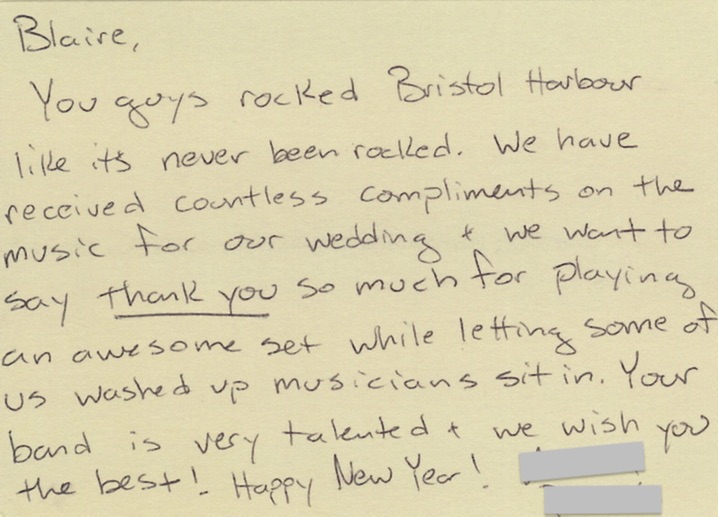 Blaire,
You guys rocked Bristol Harbour
like it's never been rocked. We have
received countless compliments on the
music for our wedding + we want to
say thank you so much for playing
an awesome set while letting some of
us washed up musicians sit in. Your
band is very talented + we wish you
the best! Happy New Year!